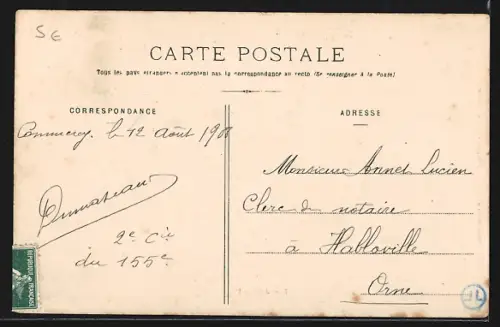 5 €
CARTE POSTALE
Tous les pays étrangers n'acceptent pas la correspondance au recto (Se renseigner à la Poste)
CORRESPONDANCE
Commercy, le 12 Août 190
2e Cie
du 155e
ADRESSE
Monsieur Annet Lucien
Clerc de notaire
à Habloville
Orne
REPUBLIQUE FRANÇAISE